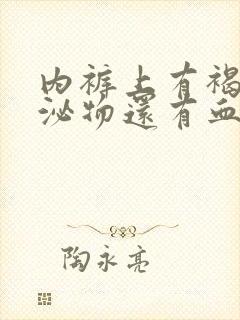 内裤上有褐
泌物还有血
陶永亮